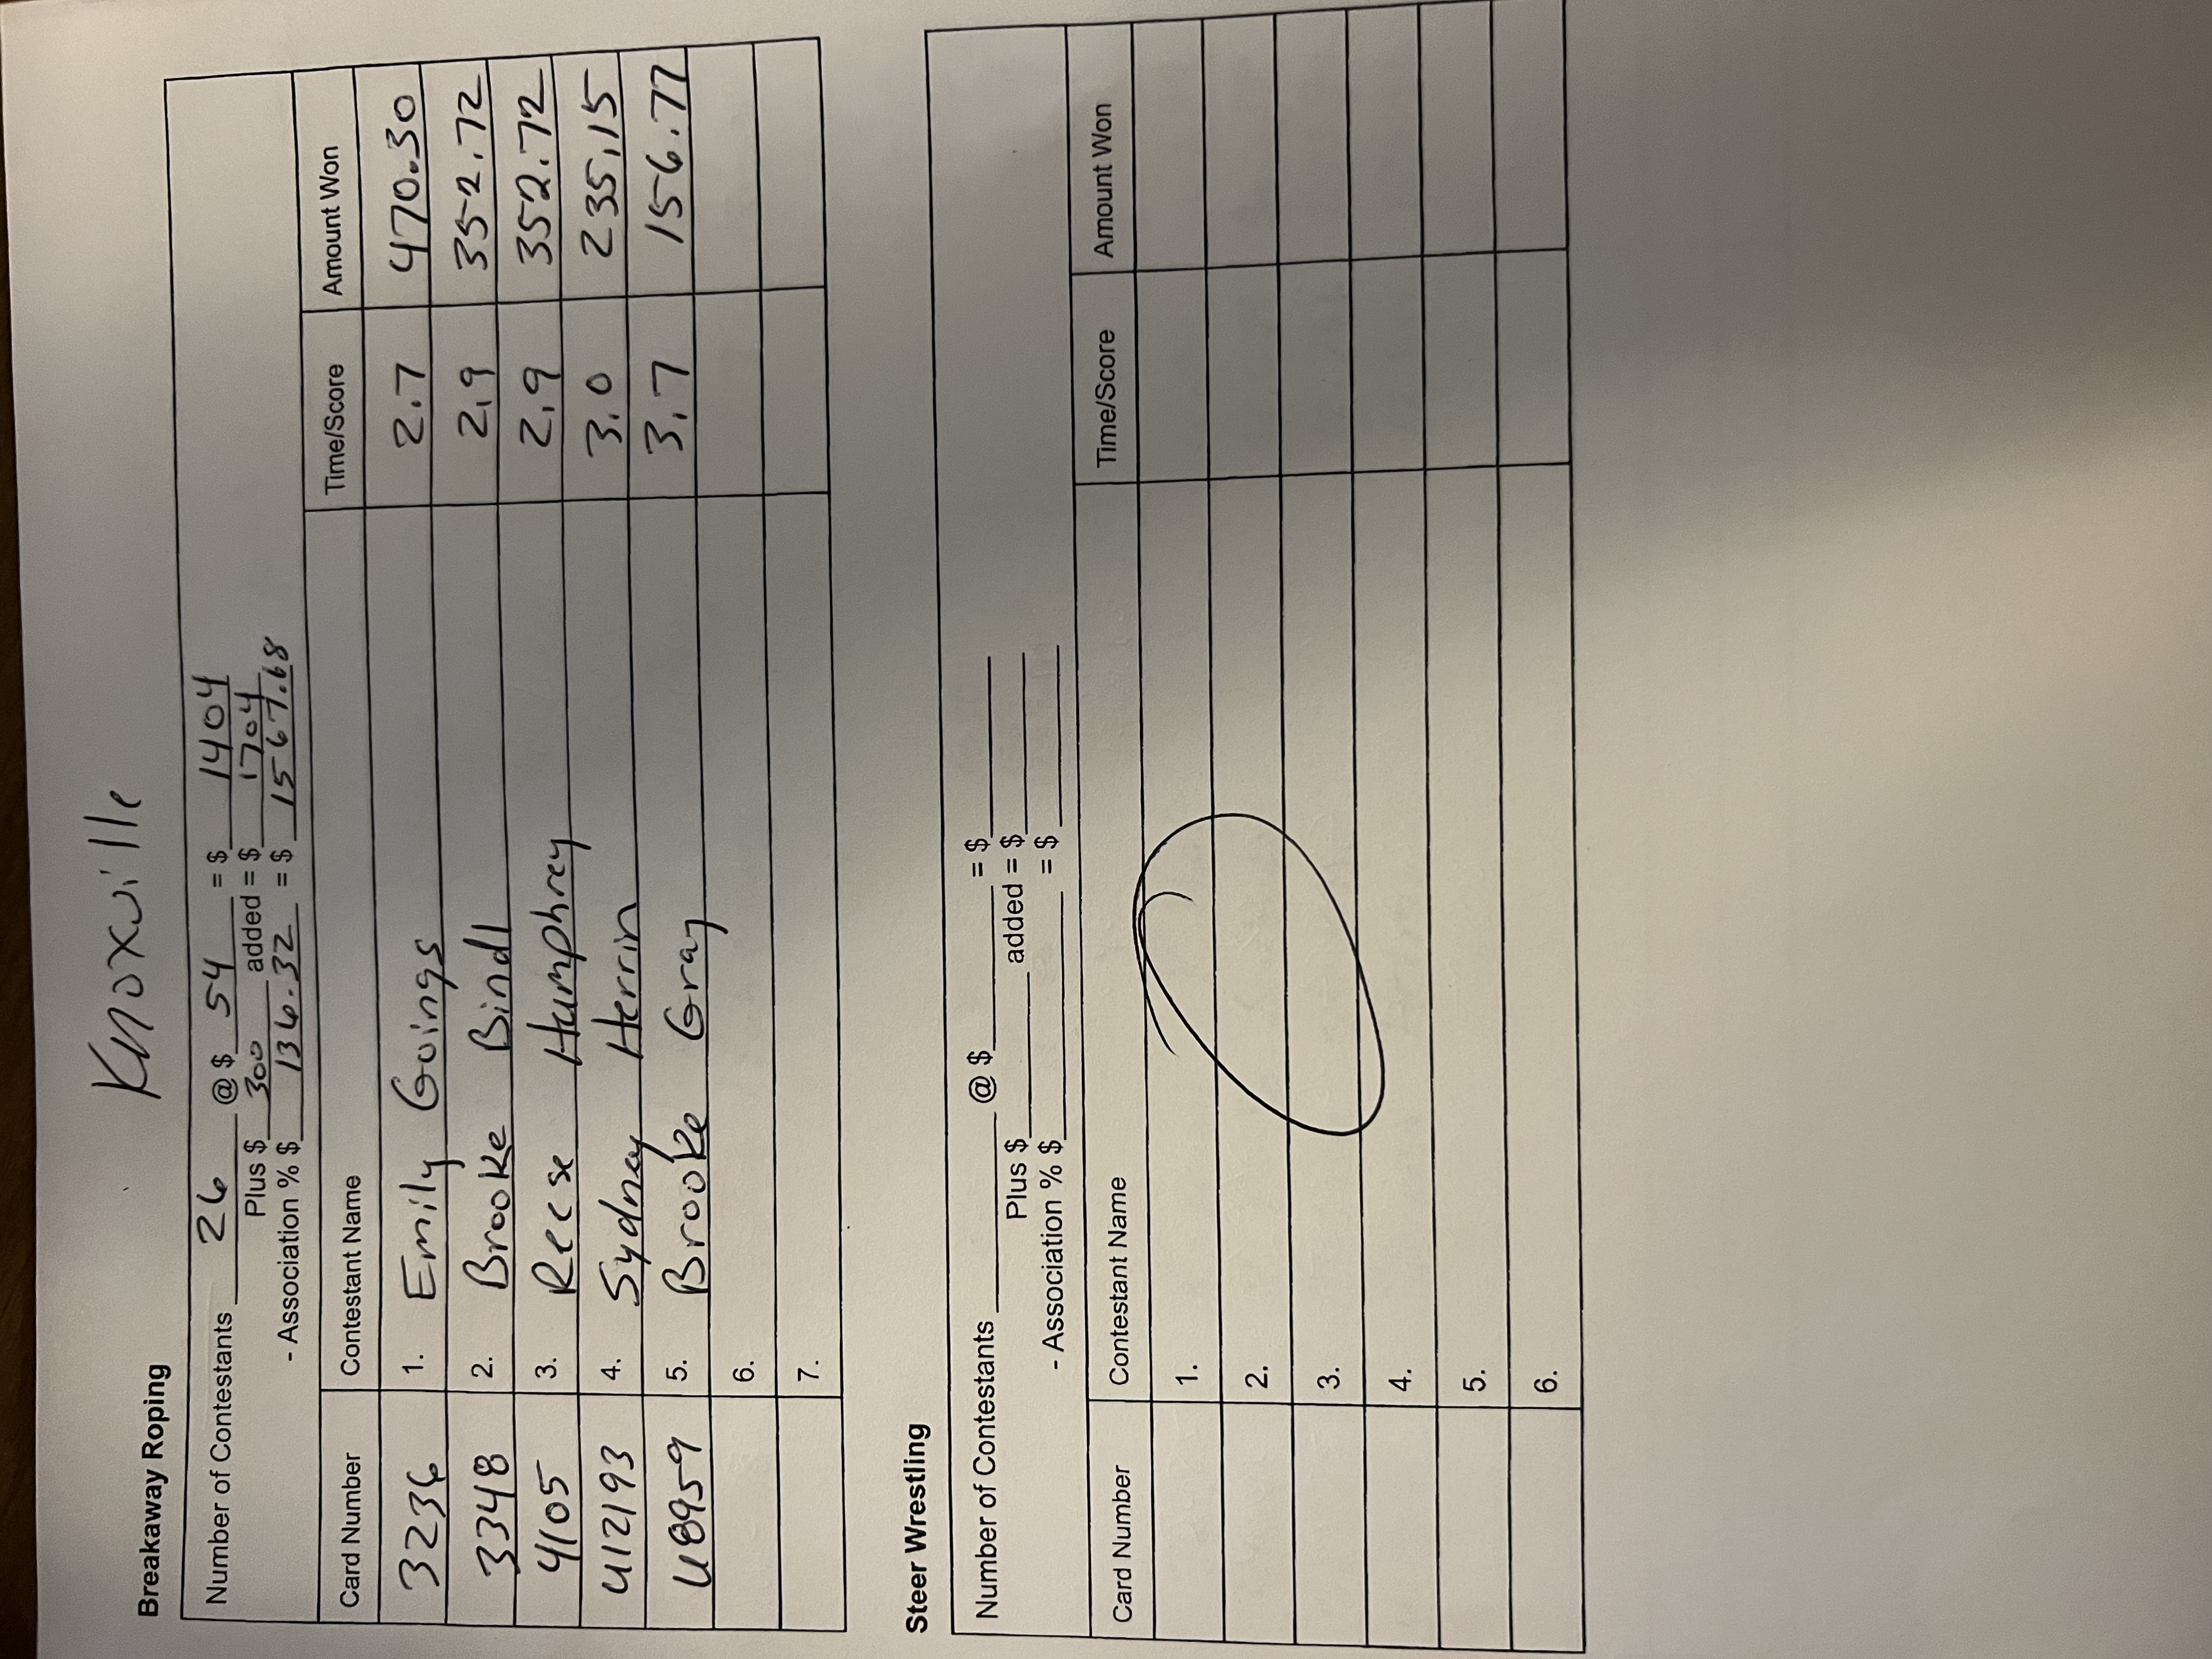 Knoxville
Breakaway Roping
Number of Contestants 26 @ $ 54 = $ 1404
Plus $ 300 added = $ 1704
- Association % $ 136.32 = $ 1567.68
Card Number Contestant Name Time/Score Amount Won
3236 1. Emily Goings 2.7 470.30
3348 2. Brooke Bindl 2.9 352.72
4105 3. Reese Humphrey 2.9 352.72
412193 4. Sydney Herrin 3.0 235.15
48959 5. Brooke Gray 3.7 156.77
6.
7.
Steer Wrestling
Number of Contestants @ $ = $
Plus $ added = $
- Association % $ = $
Card Number Contestant Name Time/Score Amount Won
1.
2.
3.
4.
5.
6.